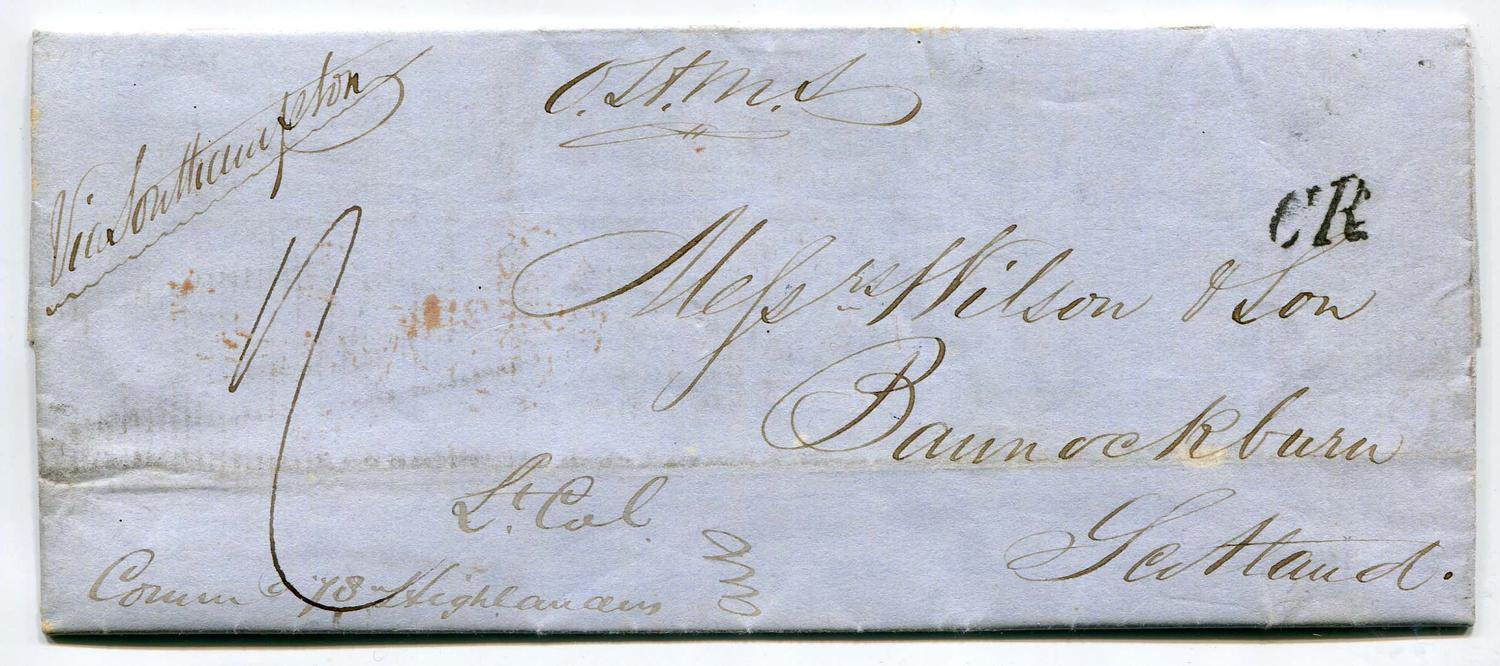 Via Southampton
O.St.M.S
CR
Messrs Wilson & Son
Bannockburn
Scotland.
Lt. Col
Commg 78th Highlanders